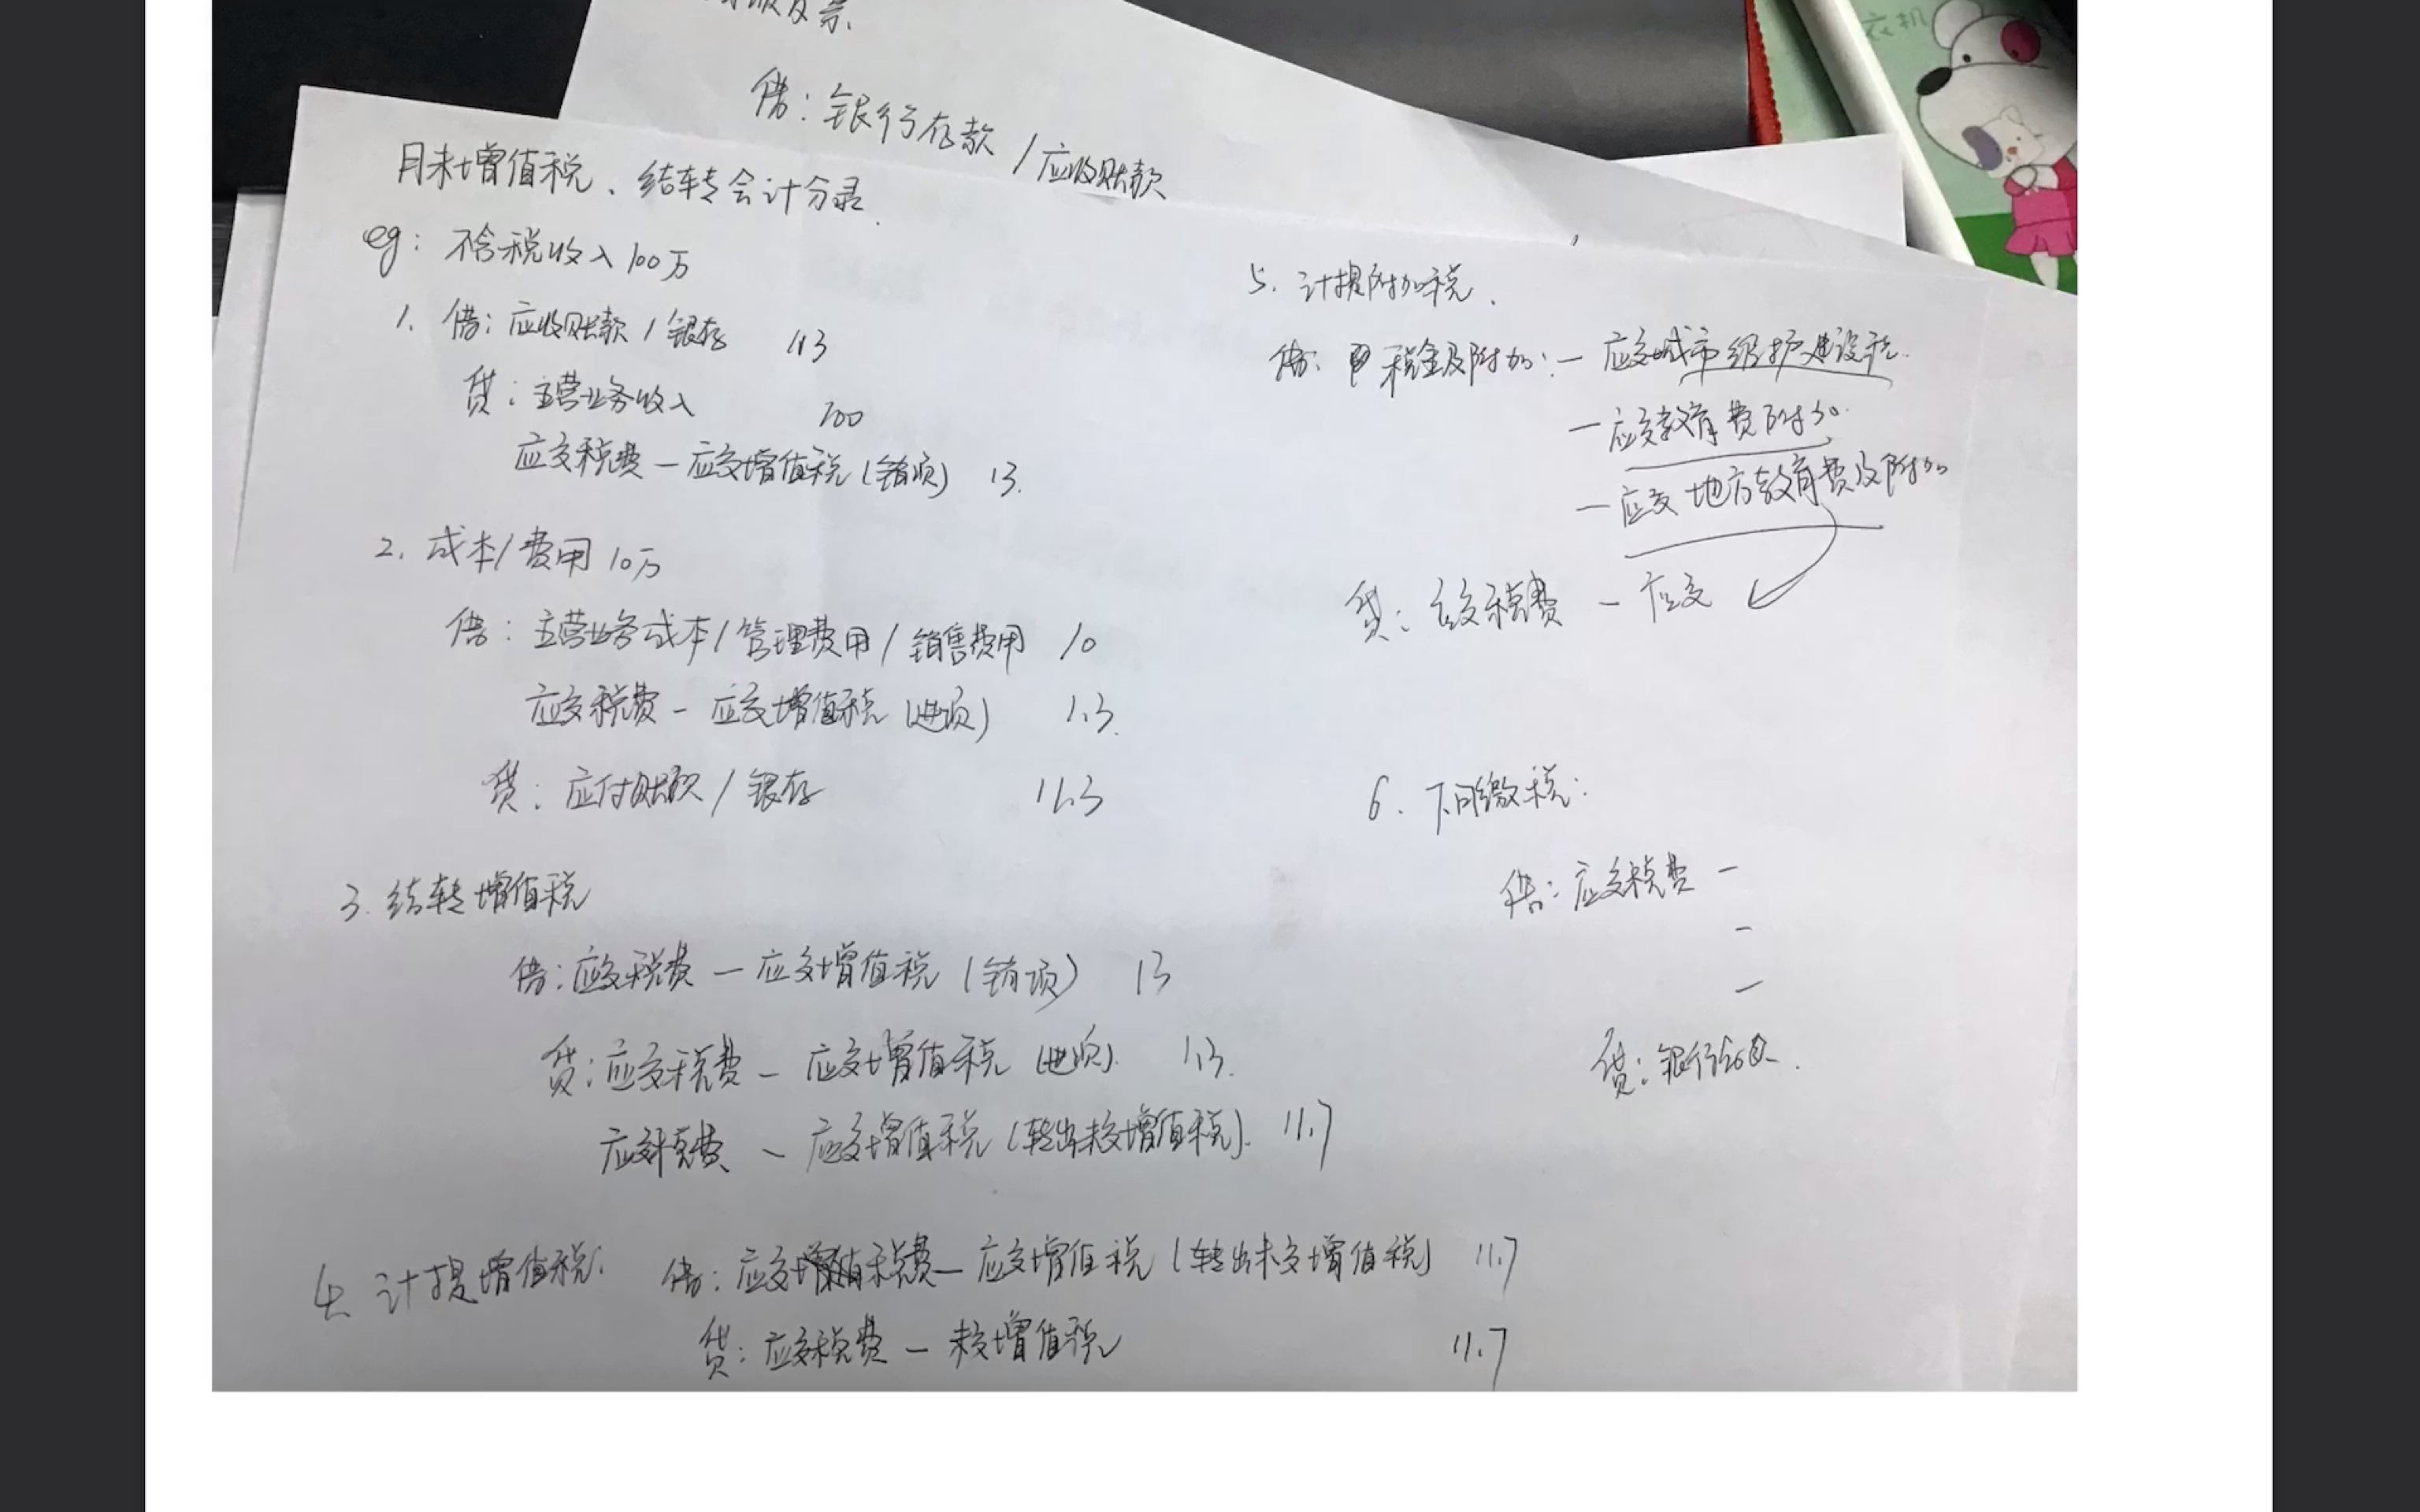 借：银行存款 / 应收账款
衣机
月末增值税、结转会计分录.
eg: 不含税收入100万
1. 借：应收账款 / 银存 113
贷：主营业务收入 100
应交税费 — 应交增值税（销项） 13.
2. 成本/费用10万
借：主营业务成本/管理费用/销售费用 10
应交税费 - 应交增值税（进项） 1.3.
贷：应付账款 / 银存 11.3
3. 结转增值税
借：应交税费 — 应交增值税（销项） 13
贷：应交税费 - 应交增值税（进项）. 1.3.
应交税费 - 应交增值税（转出未交增值税）. 11.7
4. 计提增值税: 借：应交税费 — 应交增值税（转出未交增值税） 11.7
贷：应交税费 — 未交增值税 11.7
5. 计提附加税.
借: 税金及附加: — 应交城市维护建设税.
— 应交教育费附加.
— 应交地方教育费及附加
贷：应交税费 - 应交
6. 下月缴税:
借：应交税费 -
-
-
贷：银行.